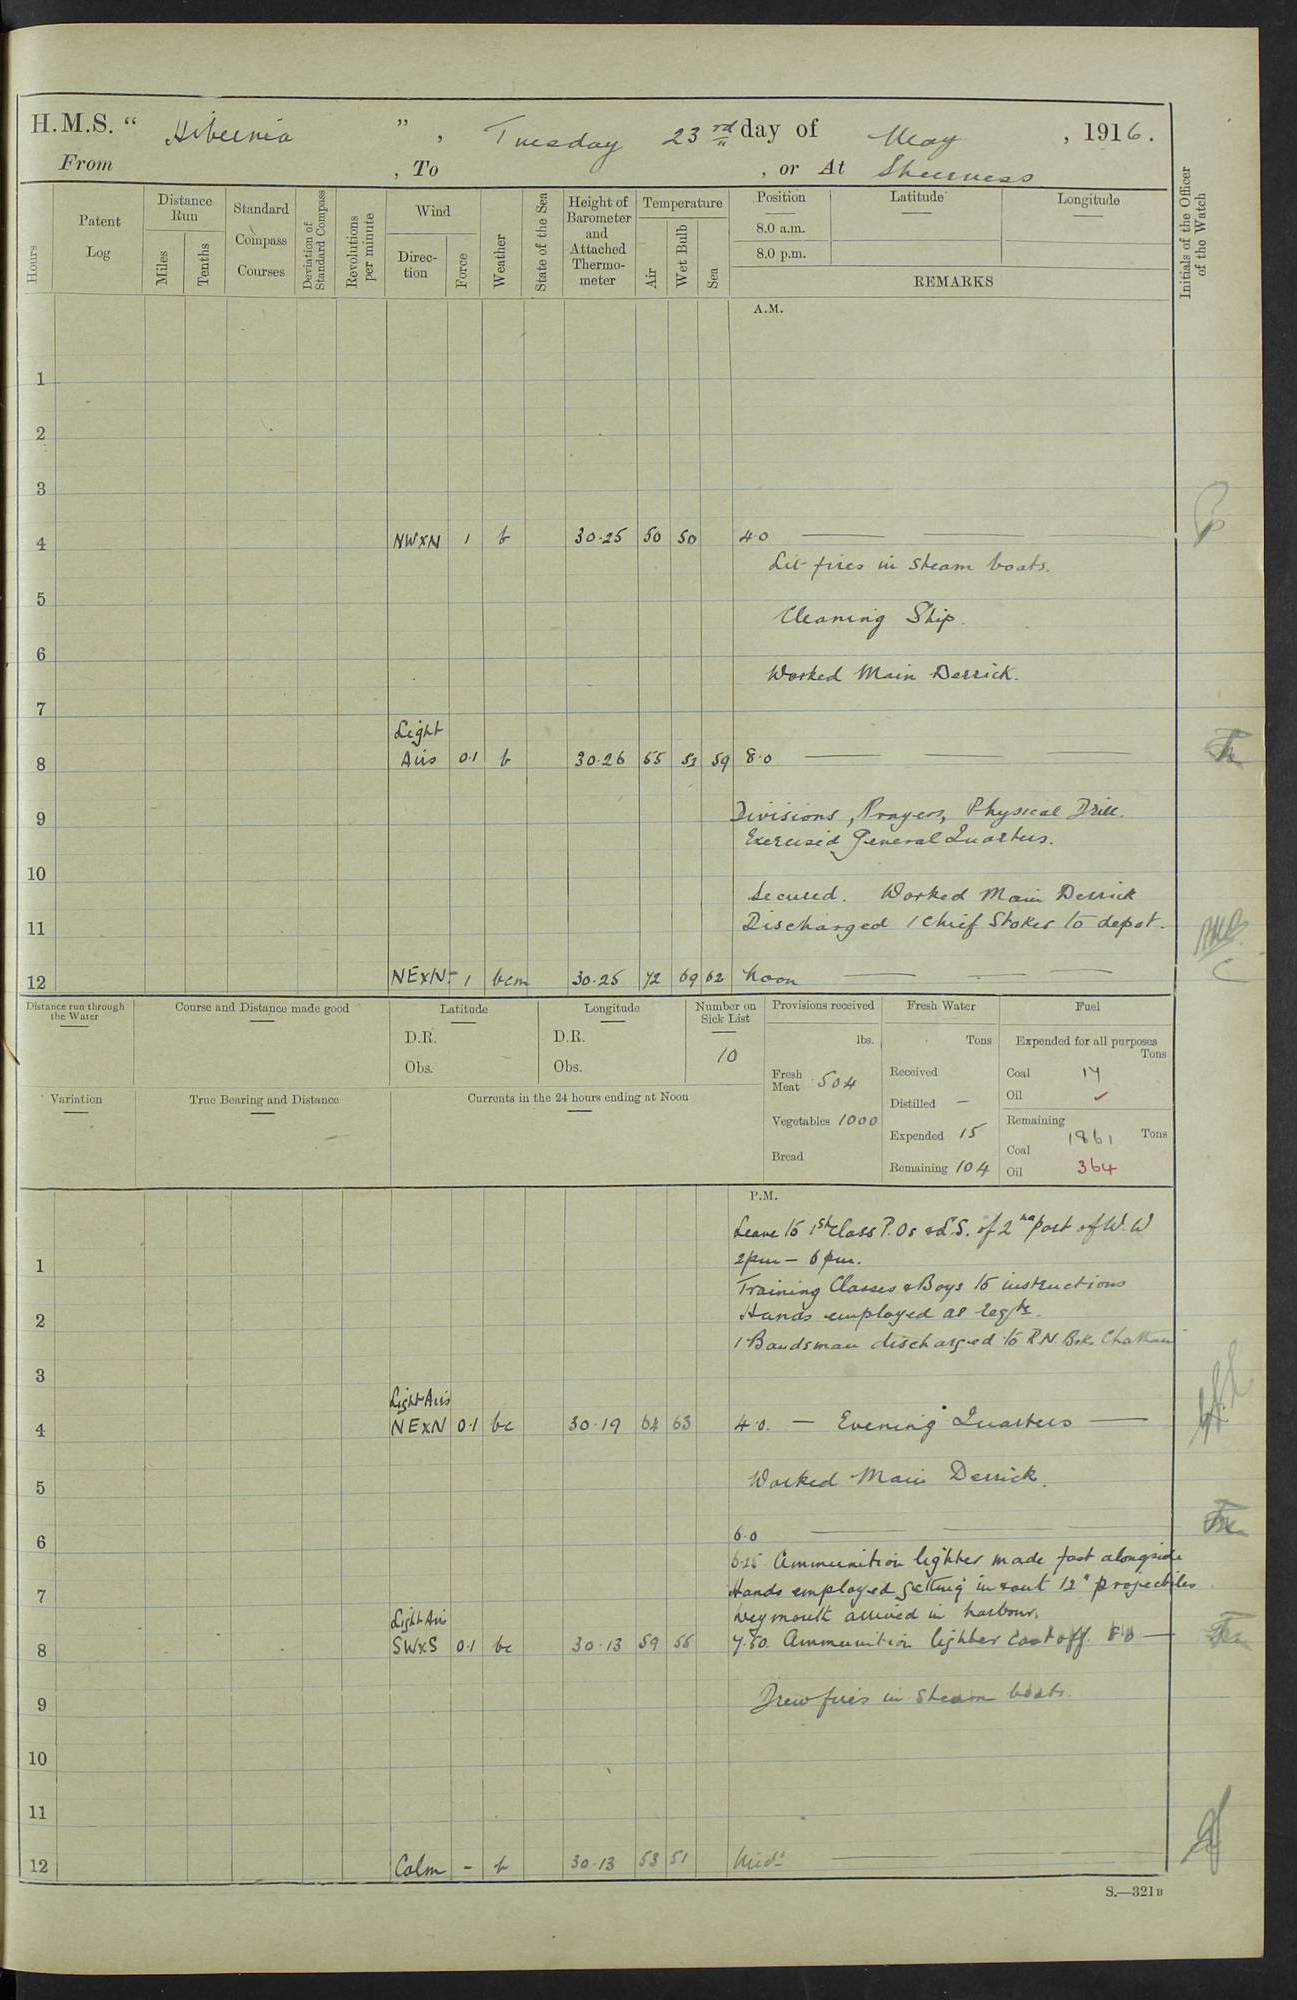 H.M.S. " Hibernia " , Tuesday 23rd day of May , 1916.
From , To , or At Sheerness
Hours
Patent Log
Distance Run
Miles
Tenths
Standard Compass Courses
Deviation of Standard Compass
Revolutions per minute
Wind
Direc-tion
Force
Weather
State of the Sea
Height of Barometer and Attached Thermo-meter
Temperature
Air
Wet Bulb
Sea
Position
8.0 a.m.
8.0 p.m.
Latitude
Longitude
REMARKS
Initials of the Officer of the Watch
A.M.
1
2
3
4 NWxN 1 b 30.25 50 50 4.0
Lit fires in steam boats.
5
Cleaning Ship.
6
Worked Main Derrick.
7
Light
8 Airs 0.1 b 30.26 55 59 8.0
9 Divisions, Prayers, Physical Drill.
Exercised General Quarters.
10
Secured. Worked Main Derrick
11 Discharged 1 Chief Stoker to depot.
12 NExN 1 bcm 30.25 72 69 62 Noon
Distance run through the Water
Course and Distance made good
Latitude
D.R.
Obs.
Longitude
D.R.
Obs.
Number on Sick List
10
Provisions received
lbs.
Fresh Meat 504
Vegetables 1000
Bread
Fresh Water
Tons
Received
Distilled —
Expended 15
Remaining 104
Fuel
Expended for all purposes
Tons
Coal 17
Oil ✓
Remaining
Tons
Coal 1861
Oil 364
Variation
True Bearing and Distance
Currents in the 24 hours ending at Noon
P.M.
Leave to 1st Class P.Os & L.S. of 2nd part of W.W
1 2pm — 6pm.
Training Classes & Boys to instructions
2 Hands employed as reqte.
1 Bandsman discharged to R.N. Bks Chatham
3
Light Airs
4 NExN 0.1 bc 30.19 64 63 4.0. — Evening Quarters —
5 Worked Main Derrick.
6 6.0
6.25 Ammunition lighter made fast alongside
7 Hands employed getting in & out 12" projectiles
Light Airs Weymouth arrived in harbour.
8 SWxS 0.1 bc 30.13 59 56 7.50. Ammunition lighter cast off. 8.0 —
9 Drew fires in steam boats.
10
11
12 Calm - b 30.13 53 51 Midt
S.—321B